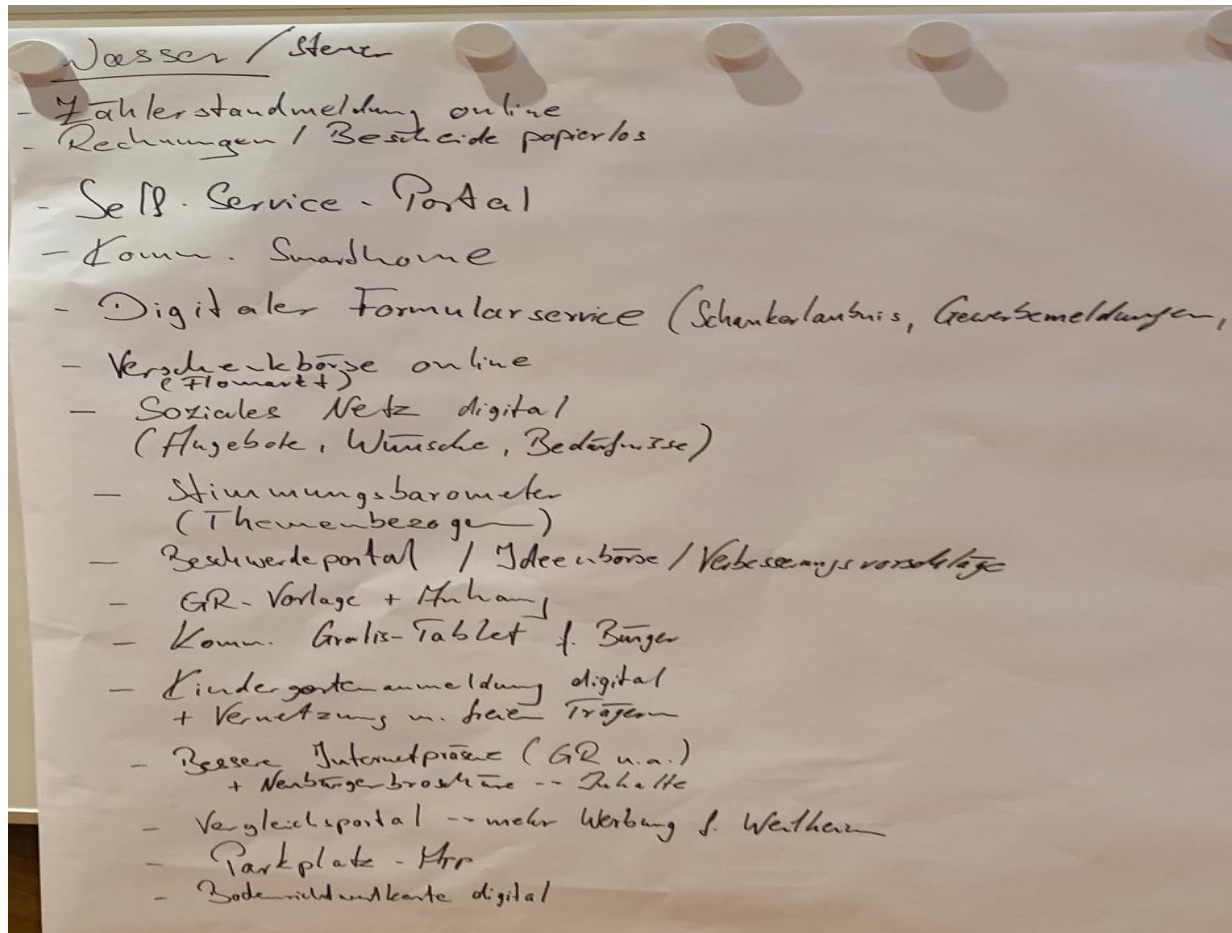 Wasser / Steuer
- Zählerstandmeldung online
- Rechnungen / Bescheide papierlos
- Self-Service-Portal
- Komm. Smarthome
- Digitaler Formularservice (Schankerlaubnis, Gewerbemeldungen,
- Verschenkbörse online
(Flomarkt)
- Soziales Netz digital
(Angebote, Wünsche, Bedürfnisse)
- Stimmungsbarometer
(Themenbezogen)
- Beschwerdeportal / Ideenbörse / Verbesserungsvorschläge
- GR-Vorlage + Anhang
- Komm. Gratis-Tablet f. Bürger
- Kindergartenanmeldung digital
+ Vernetzung m. freien Trägern
- Bessere Internetpräsenz (GR u.a.)
+ Neubürgerbroschüre -- Inhalte
- Vergleichsportal -- mehr Werbung f. Wertheim
- Parkplatz-App
- Bodenrichtwertkarte digital